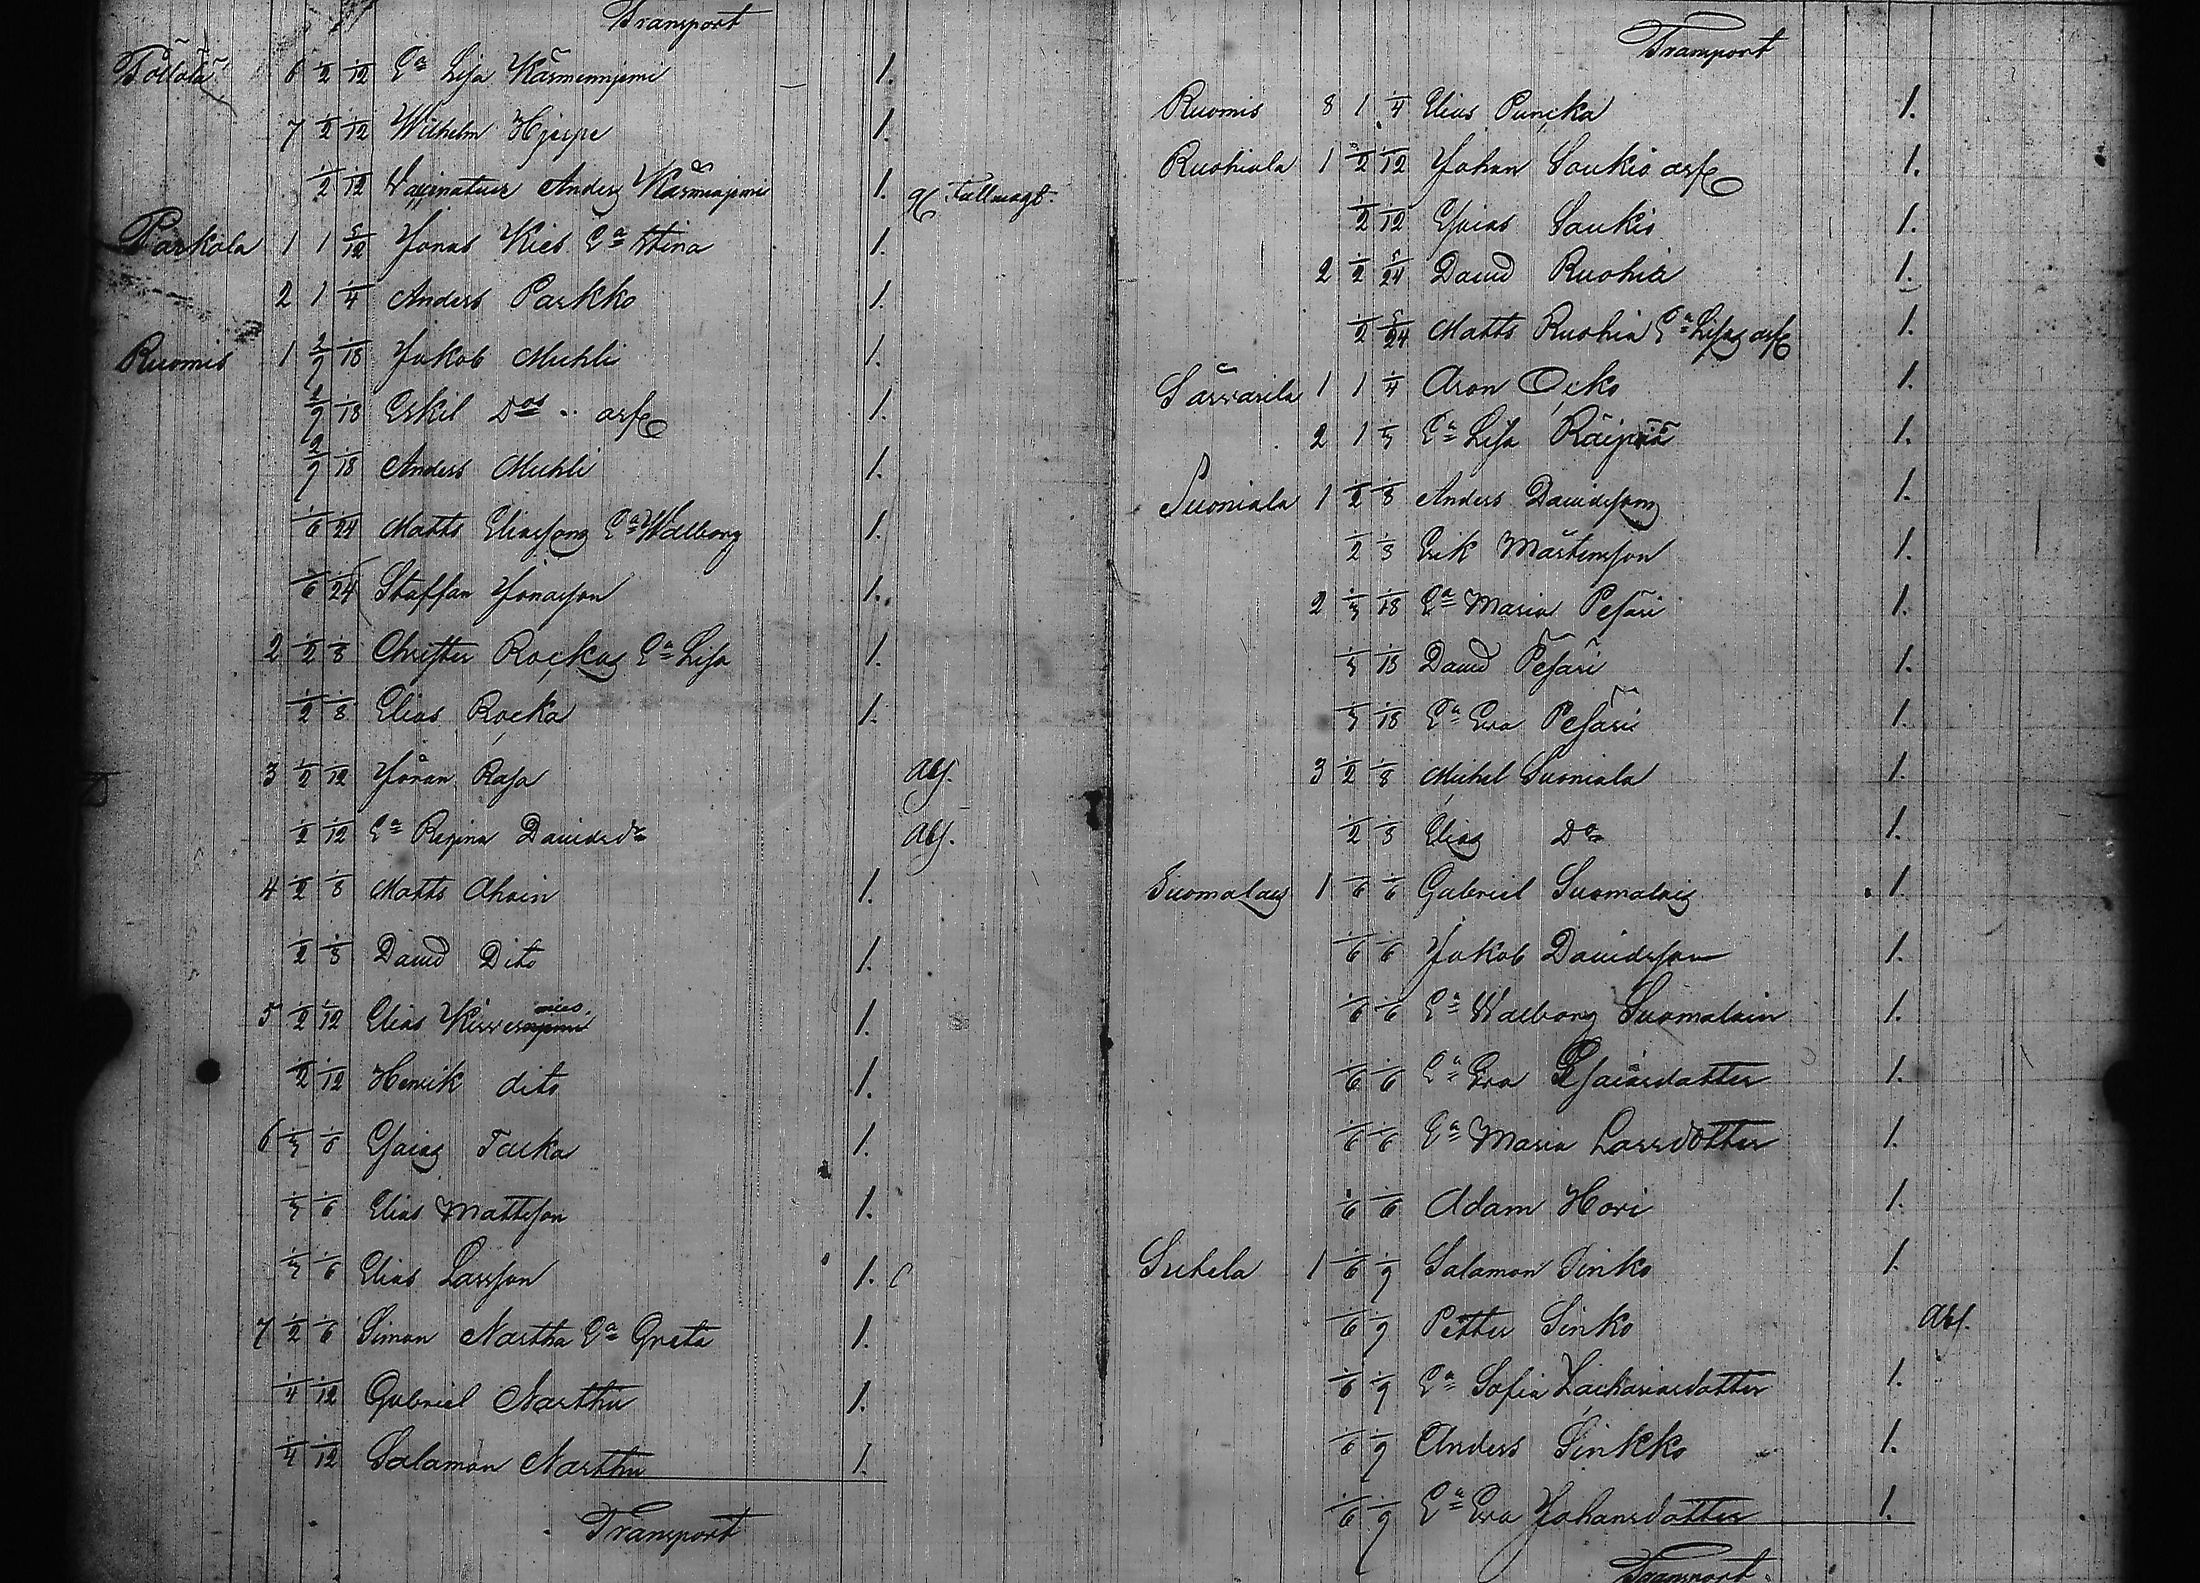 Transport
6 1/2 1/12 Ea Lisa Kärmenniemi 1.
7 1/2 1/12 Wilhelm Hjerpe 1.
1/2 1/12 Vaccinateur Anders 1. Fullmagt.
Parkola 1 1 5/12 Jonas Kies Ea Stina 1.
2 1 1/4 Anders Parkko 1.
Ruomis 1 2/9 1/18 Jakob Muhli 1.
2/9 1/18 Eskil Dos arfe 1.
2/9 1/18 Anders Muhli 1.
1/6 1/24 Matts Eliassons Ea Walborg 1.
1/6 1/24 Staffan Jönasson 1.
2 1/2 1/8 Christer Rockas Ea Lisa 1.
1/2 1/8 Elias Rocka 1.
3 1/2 1/12 Jöran Rasa Abs.
1/2 1/12 Ea Regina Davidsdr Abs.
4 1/2 1/8 Matts Ahoin 1.
1/2 1/8 David Dito 1.
5 1/2 1/12 Elias 1.
1/2 1/12 Henrik dito 1.
6 1/3 1/6 Esaias Tauka 1.
1/3 1/6 Elias Mattsson 1.
1/3 1/6 Elias Larsson 1.
7 1/2 1/6 Simon Nartha Ea Greta 1.
1/4 1/12 Gabriel Narthu 1.
1/4 1/12 Salamon Narthu 1.
Transport
Transport
Ruomis 8 1 1/4 Elias Puncka 1.
Ruohiala 1 1/2 1/12 Johan Soukio arfe 1.
1/2 1/12 Esaias Soukio 1.
2 1/2 5/24 David Ruohia 1.
1/2 5/24 Matts Ruohia Ea Lisas arfe 1.
Särvarila 1 1 1/4 Aron Ocko 1.
2 1 1/3 Ea Lisa Räipiä 1.
Suoniala 1 1/2 1/8 Anders Davidsson 1.
1/2 1/8 Erik Mårtensson 1.
2 1/3 1/18 Ea Maria Pesäri 1.
1/3 1/18 David Pesäri 1.
1/3 1/18 Ea Eva Pesäri 1.
3 1/2 1/8 Michel Suoniala 1.
1/2 1/8 Elias Do 1.
Suomalais 1 1/6 1/6 Gabriel Suomalais 1.
1/6 1/6 Jakob Davidsson 1.
1/6 1/6 Ea Walborg Suomalain 1.
1/6 1/6 Ea Eva Esaiasdotter 1.
1/6 1/6 Ea Maria Larsdotter 1.
1/6 1/6 Adam Hovi 1.
Suhela 1 1/6 1/9 Salamon Sinko 1.
1/6 1/9 Petter Sinko Abs.
1/6 1/9 Ea Sofia Zachariasdotter 1.
1/6 1/9 Anders Sinkko 1.
1/6 1/9 Ea Eva Johansdotter 1.
Transport